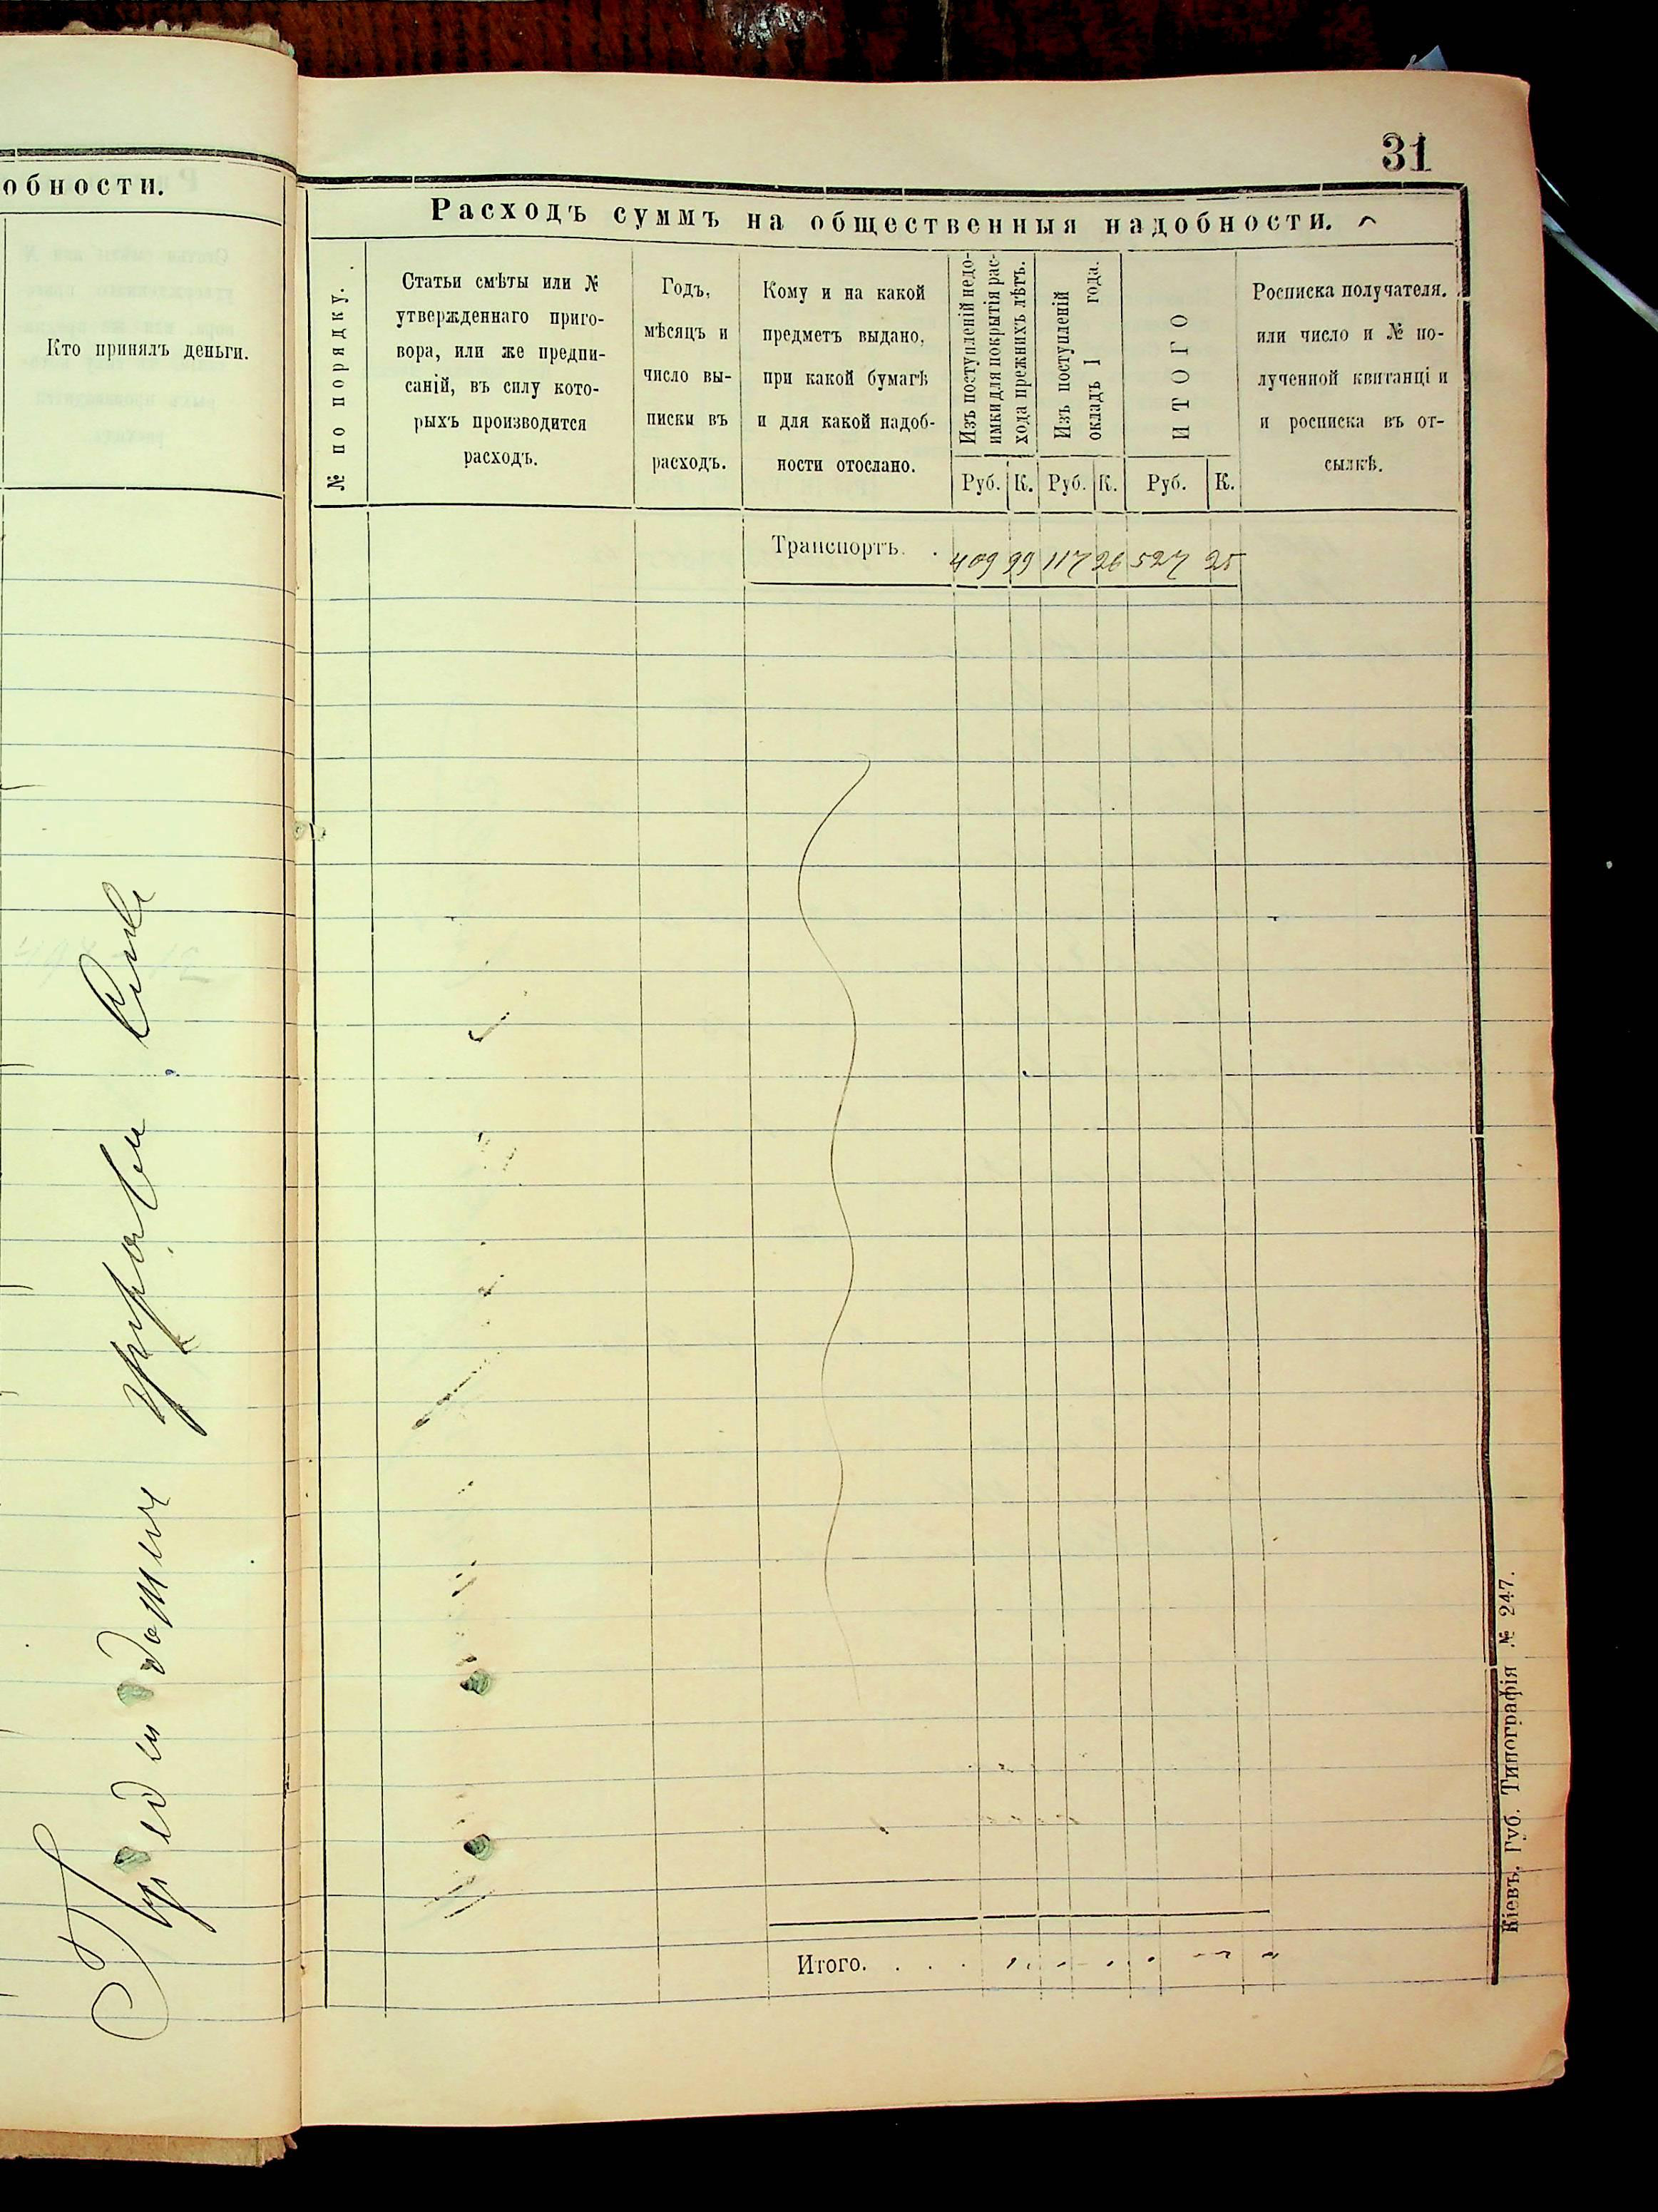 обности.
Кто принялъ деньги.
31
Расходъ суммъ на общественныя надобности.
№ по порядку.
Статьи смѣты или №
утвержденнаго приго-
вора, или же предпи-
саній, въ силу кото-
рыхъ производится
расходъ.
Годъ,
мѣсяцъ и
число вы-
писки въ
расходъ.
Кому и на какой
предметъ выдано,
при какой бумагѣ
и для какой надоб-
ности отослано.
Изъ поступленій недо-
имки для покрытія рас-
хода прежнихъ лѣтъ.
Изъ поступленій
окладъ 1 года.
ИТОГО
Росписка получателя.
или число и № по-
лученной квитанціи
и росписка въ от-
сылкѣ.
Руб. К. Руб. К. Руб. К.
Транспортъ. . 409 99 117 26 527 25
Итого. . . .
Кіевъ. Губ. Типографія № 247.